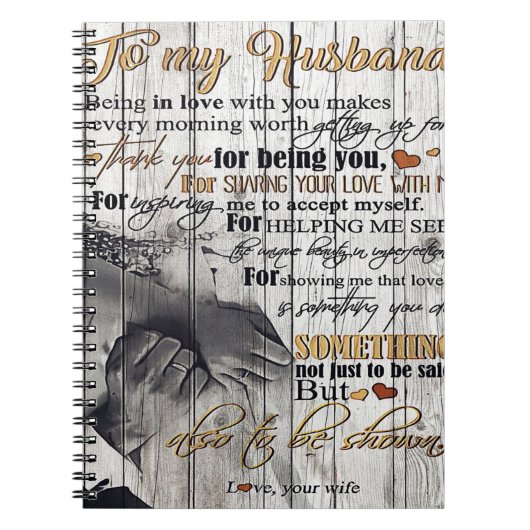 To my Husband
Being in love with you makes
every morning worth getting up for
Thank you for being you,
For SHARING YOUR LOVE WITH M
For inspiring me to accept myself.
For HELPING ME SEE
the unique beauty in imperfection
For showing me that love
is something you do
SOMETHING
not just to be said
But
also to be shown,
Love, your wife